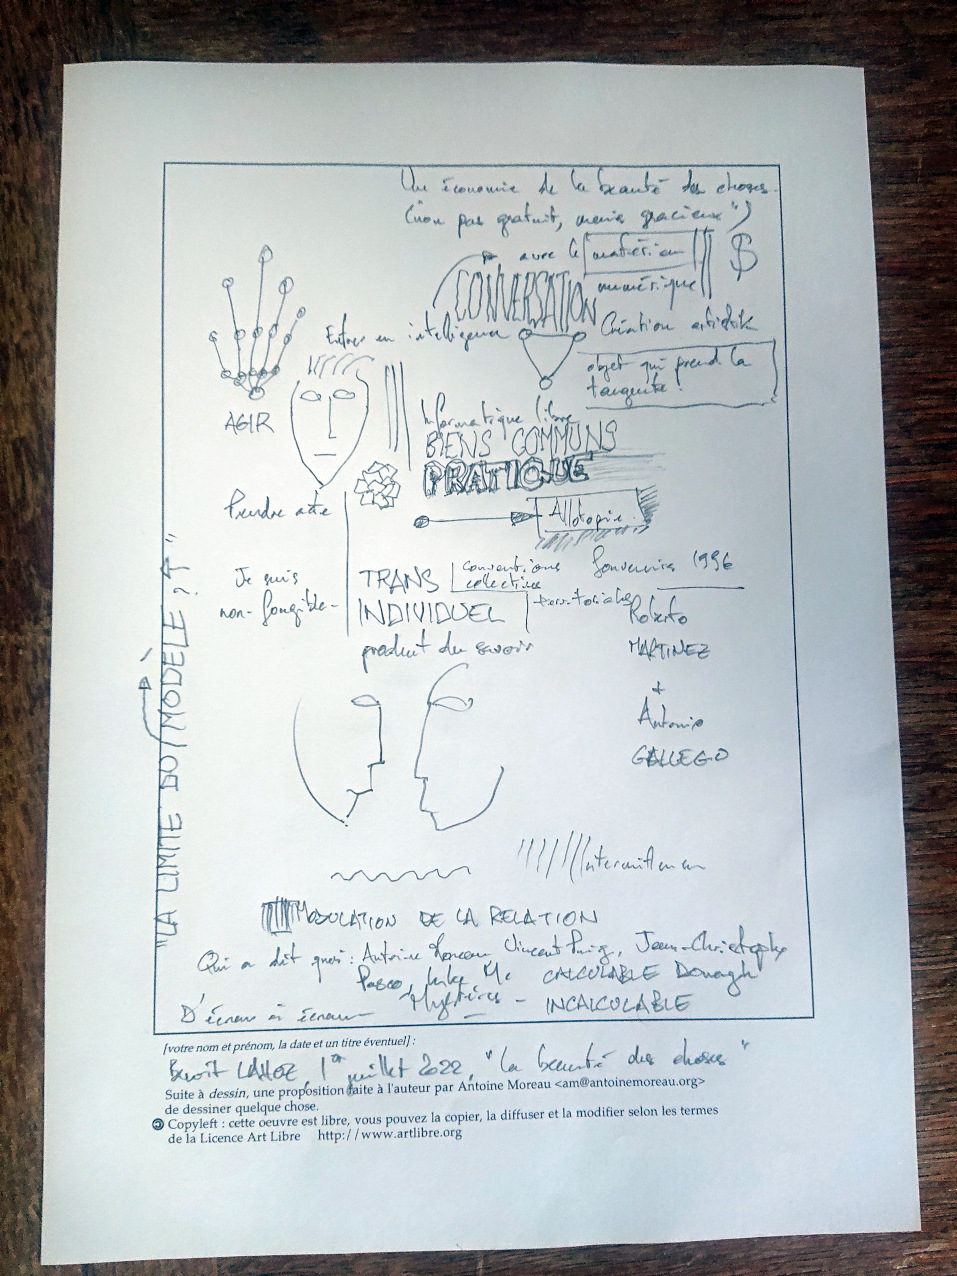 Une économie de la beauté des choses.
(non pas gratuit, mais gracieux")
avec le matériau
$
CONVERSATION numérique
Entrer en intelligence
Création artistik
objet qui prend la
tangente !
AGIR
Informatique libre
BIENS COMMUNS
PRATIQUE
Prendre acte
Allotopie
Je suis
non-fongible-
TRANS
INDIVIDUEL
conventions
collectives
territoriales
produit du savoir
Souvenirs 1996
Roberto
MARTINEZ
+
Antonio
GALLEGO
"LA LIMITE DU MODÈLE ? "
MODULATION DE LA RELATION
Qui a dit quoi : Antoine Moreau Vincent Puig, Jean-Christophe
Pasco, Luke Mc CALCULABLE Donagh
Mystères - INCALCULABLE
D'écran à écran
[votre nom et prénom, la date et un titre éventuel] :
Benoît LAHOZ, 1er juillet 2022, "La beauté des choses"
Suite à dessin, une proposition faite à l'auteur par Antoine Moreau <am@antoinemoreau.org>
de dessiner quelque chose.
Copyleft : cette oeuvre est libre, vous pouvez la copier, la diffuser et la modifier selon les termes
de la Licence Art Libre http://www.artlibre.org